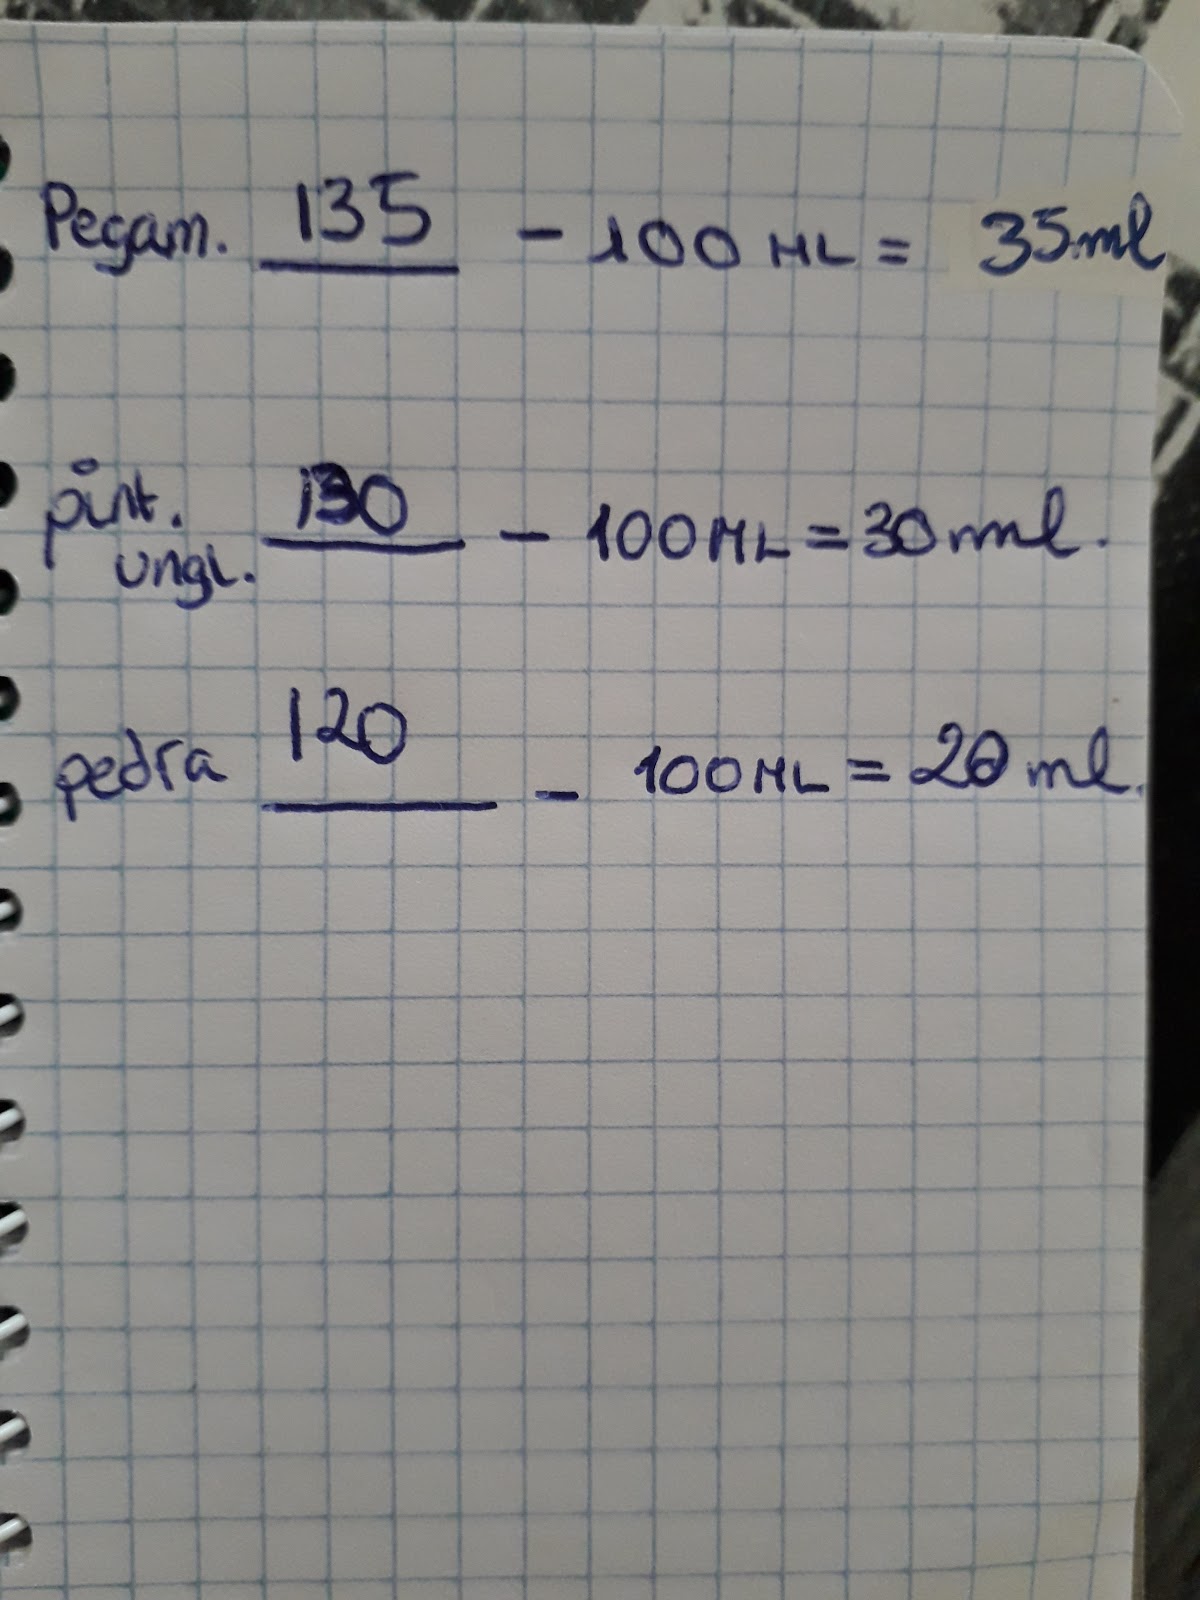 Pegam. 135 - 100 ML = 35ml
pint. ungl. 130 - 100 ML = 30 ml.
pedra 120 - 100 ML = 20 ml.